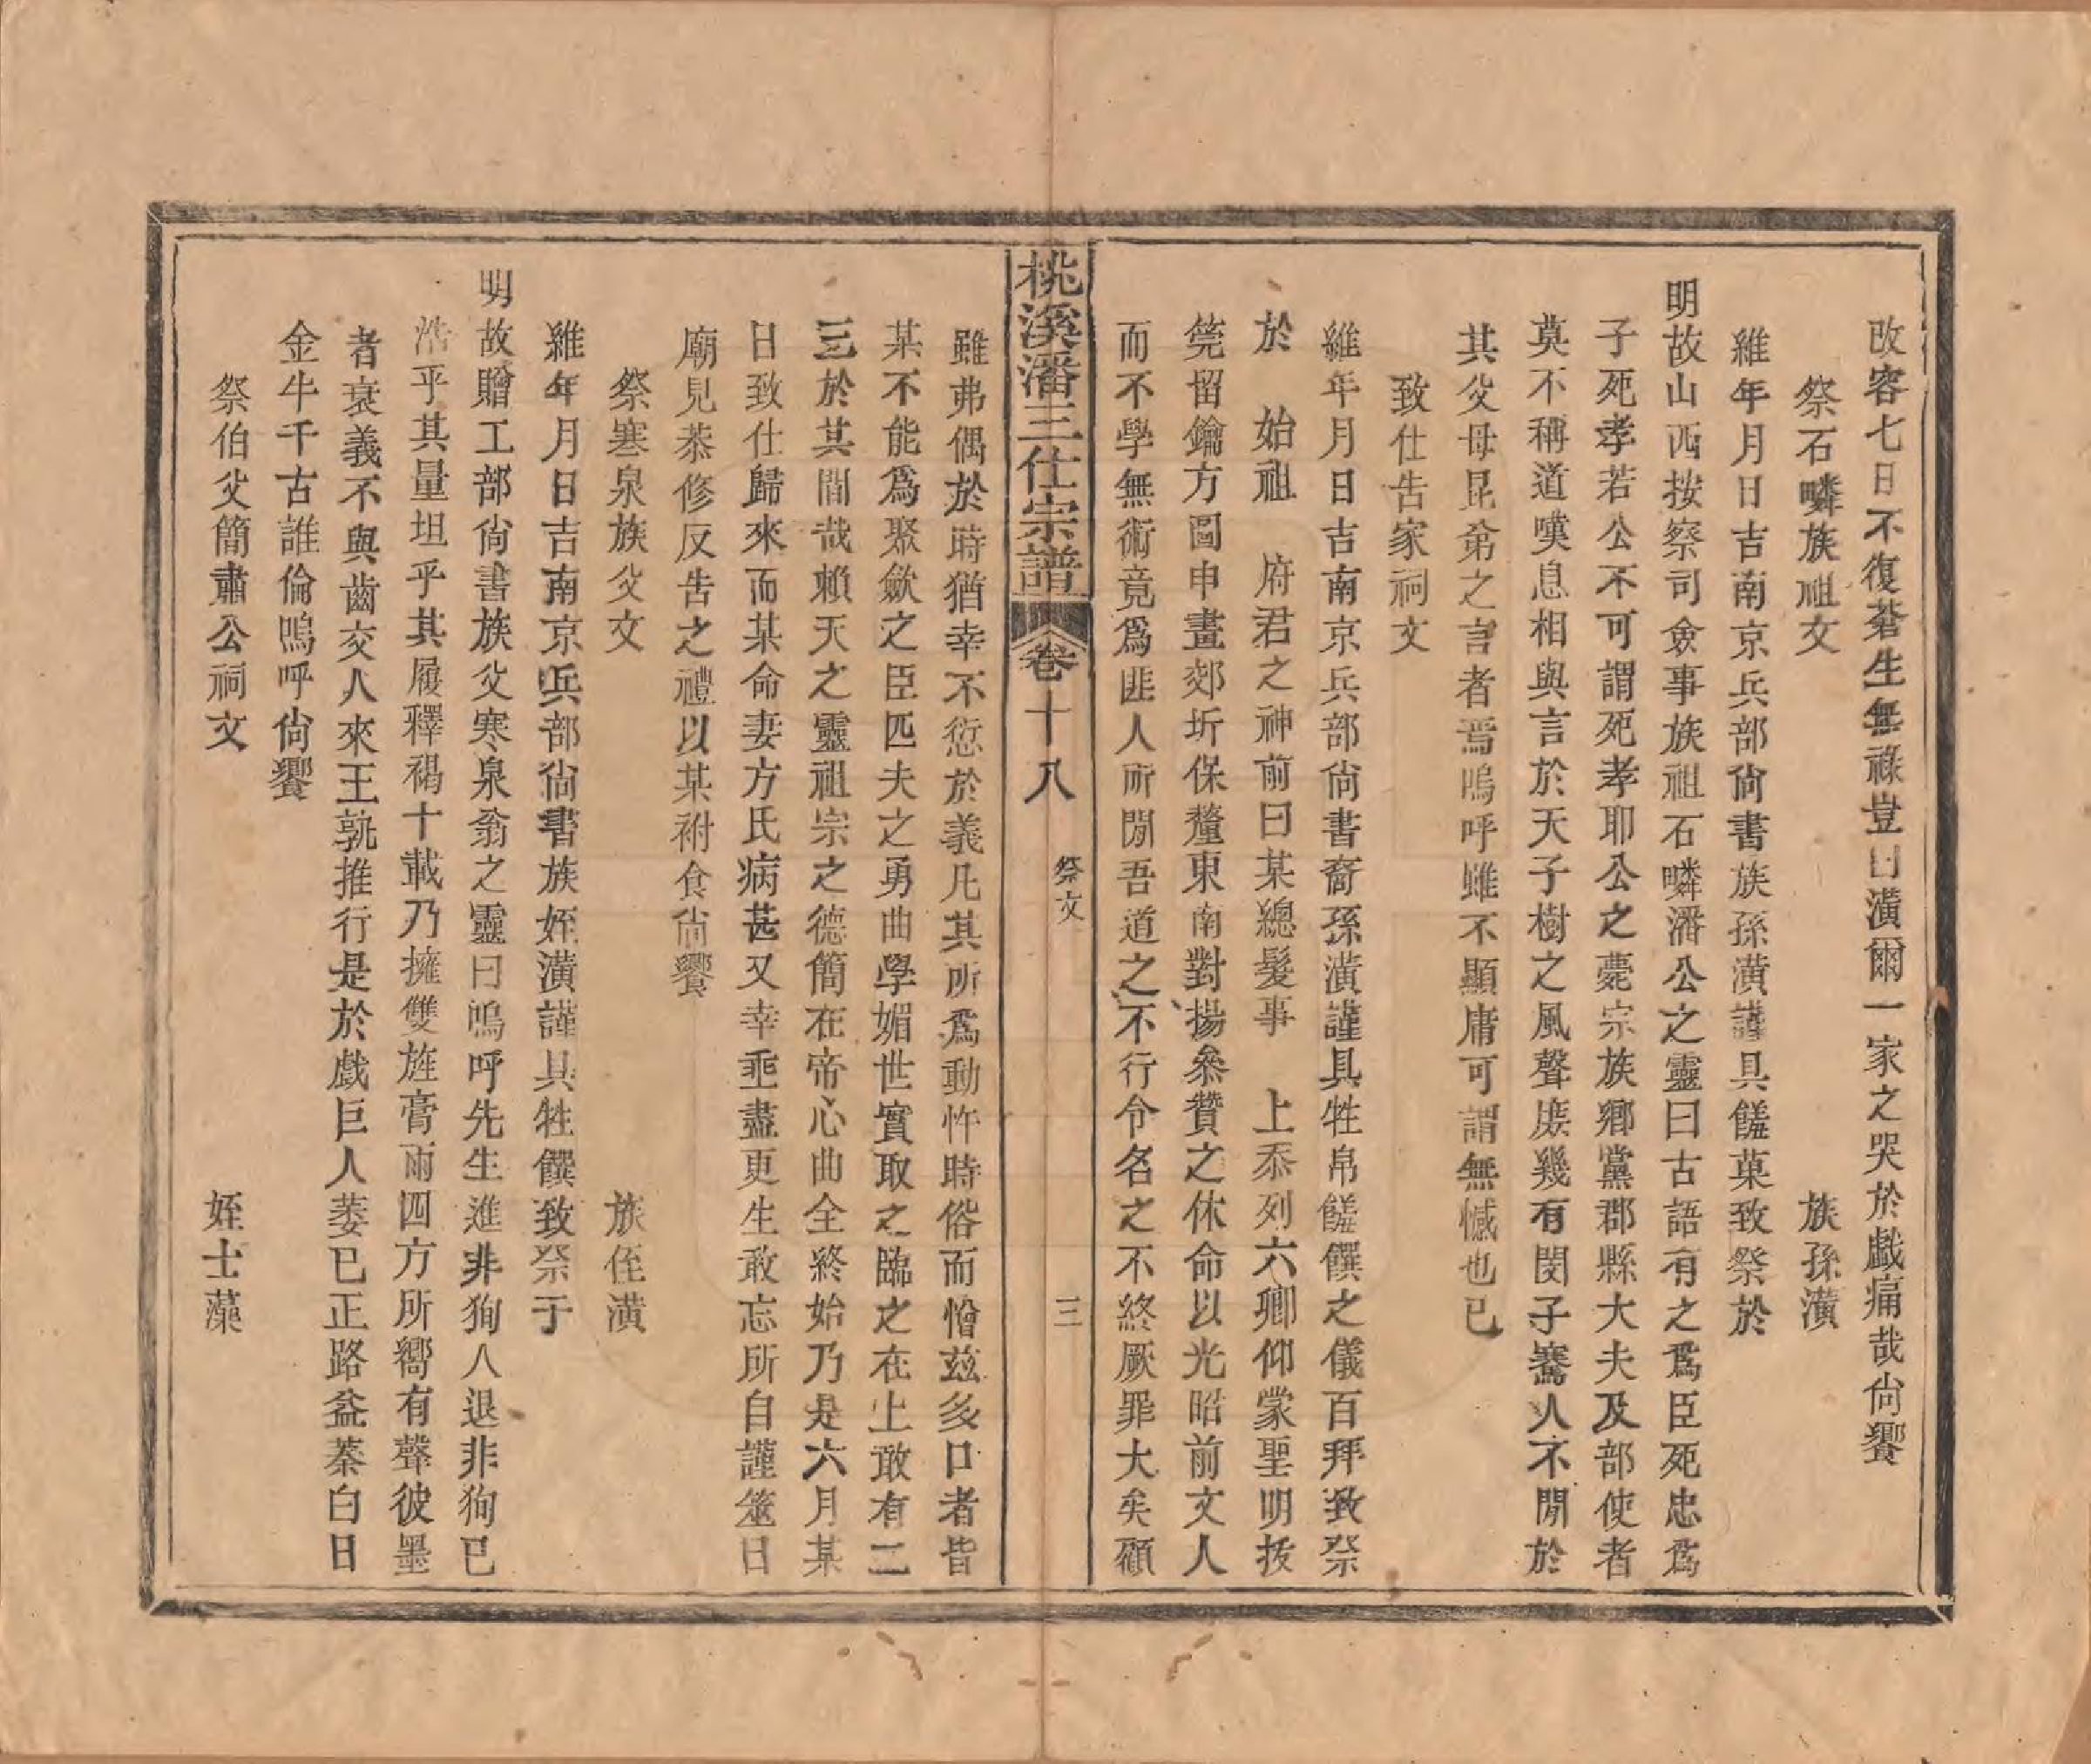 改容七日不復蒼生無祿豈曰潢爾一家之哭於戲痛哉尙饗
祭石疄族祖文　族孫潢
維年月日吉南京兵部尙書族孫潢謹具饈菓致祭於
明故山西按察司僉事族祖石疄潘公之靈曰古語有之爲臣死忠爲
子死孝若公不可謂死孝耶公之薨宗族鄉黨郡縣大夫及部使者
莫不稱道嘆息相與言於天子樹之風聲庶幾有閔子騫人不閒於
其父母昆弟之言者焉嗚呼雖不顯庸可謂無憾也已
致仕告家祠文
維年月日吉南京兵部尙書裔孫潢謹具牲帛饈饌之儀百拜致祭
於　始祖　府君之神前曰某總髮事　上忝列六卿仰蒙聖明拔
筦留鑰方圖申畫郊圻保釐東南對揚叅贊之休命以光昭前文人
而不學無術竟爲匪人所閒吾道之不行令名之不終厥罪大矣顧
桃溪潘三仕宗譜　卷十八　祭文　三
雖弗偶於時猶幸不愆於義凡其所爲動忤時俗而憎兹多口者皆
某不能爲聚歛之臣匹夫之勇曲學媚世實取之臨之在上敢有二
三於其間哉賴天之靈祖宗之德簡在帝心曲全終始乃是六月某
日致仕歸來而某命妻方氏病甚又幸垂盡更生敢忘所自謹筮日
廟見恭修反告之禮以某祔食尙饗
祭寒泉族父文　族侄潢
維年月日吉南京兵部尙書族姪潢謹具牲饌致祭于
明故贈工部尙書族父寒泉翁之靈曰嗚呼先生進非狥人退非狥已
浩乎其量坦乎其履釋褐十載乃擁雙旌膏雨四方所嚮有聲彼墨
者衰義不與齒交人來王孰推行是於戲巨人萎已正路益蓁白日
金牛千古誰倫嗚呼尙饗
祭伯父簡肅公祠文　姪士藻